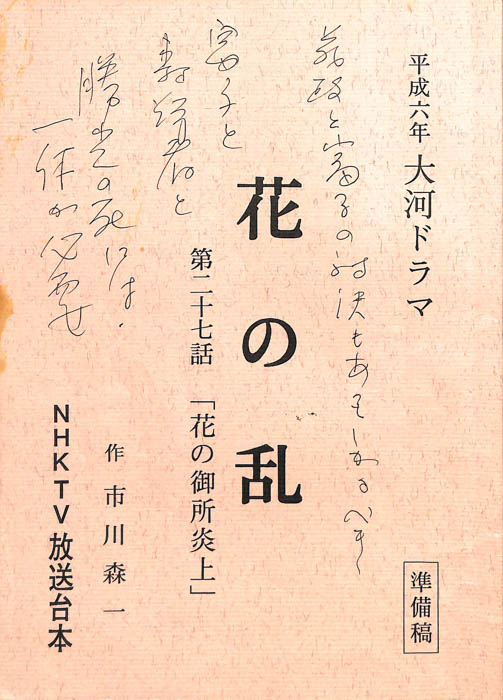 平成六年 大河ドラマ
準備稿
義政と富子の対決もあ
花の乱
富子と
と
第二十七話 「花の御所炎上」
勝光の死には、
作 市川森一
一休が必要せ
NHKTV放送台本